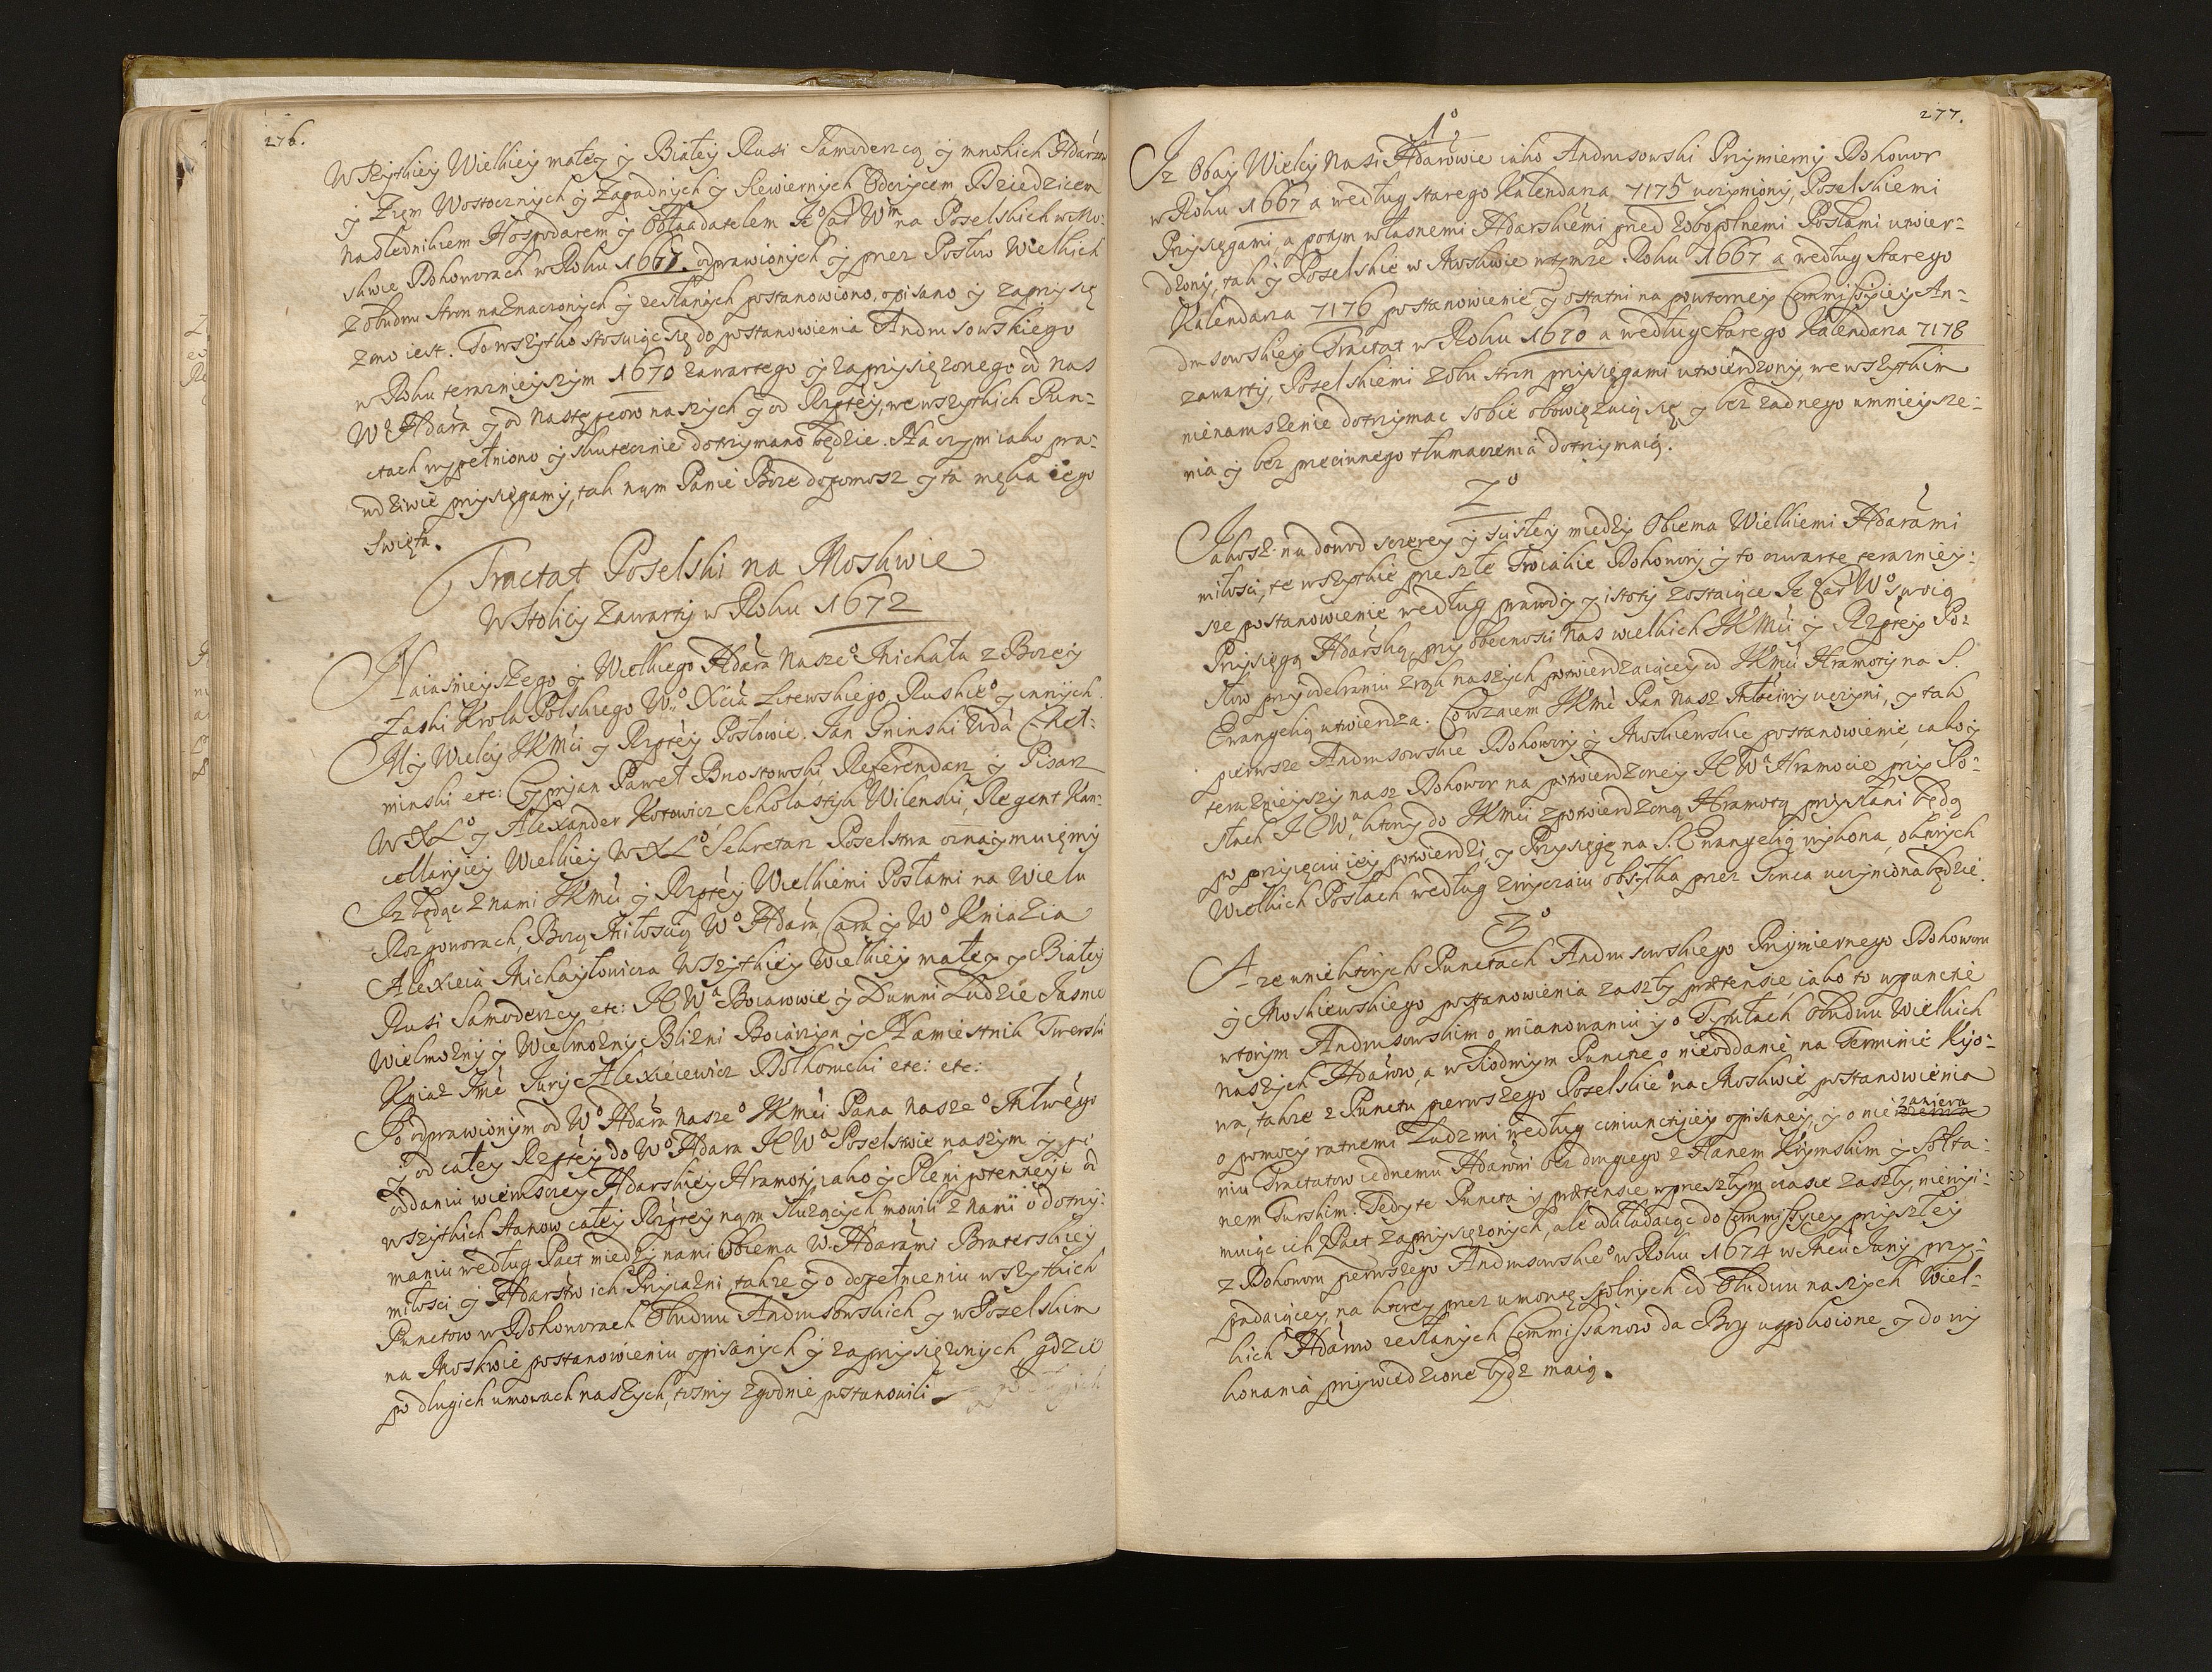 276.
Wszytkiey Wielkiey małey y Białey Rusi Samoderzcą y mnohich Hdárstw
y Ziem Wostocznych y Zapadnych y Siewiernych Odczycem Dziedzicem
Nasledníkiem Hospodarem y Obładatelem Je° Car Wm na Poselskich w Mo-
skwie Dohoworach w Roku 1667. odprawionych y przez Posłow Wielkich
z obudwu stron naznaczonych y zesłanych postanowiono, opisano y zaprzysię
zono iest. To wszytko stosuiąc się do postanowienia Andrusowskiego
w Roku teraznieyszym 1670 zawartego y zaprzysięzonego od nas
W° Hdára y od Następcow naszych y od Rzptey, we wszytkich Pun-
ctach wypełniono y skutecznie dotrzymano będzie. Na czym iako pra-
wdziwie przysięgamy, tak nąm Panie Boze dopomosz y ta męka iego
Swięta.
Tractat Poselski na Moskwie
W Stolicy Zawarty w Roku 1672
Naiasnieyszego y Wielkiego Hdára Nasze° Michała z Bozey
Łaski Krola Polskiego W° Xcia Litewskiego Ruskie° y innych
My Wielcy JKMci y Rzptey Posłowie. Jan Gninski Wdá Cheł-
minski etc: Cyprjan Paweł Brzostowski Referendarz y Pisarz
WXL° y Alexander Kotowicz Scholastyk Wilenski, Regent Kan-
cellaryiey Wielkiey WXL° Sekretarz Poselstwa oznaymuięmy
Iz będąc z nami JKMci y Rzptey Wielkiemi Posłami na wielu
Rozgoworach, Bozą Miłoscią W° Hdára Cara y W° Kniazia
Alexieia Michayłowicza Wszytkiey Wielkiey małey y Białey
Rusi Samoderzcy etc: JCWa Boiarowie y Dumni Ludzie Jasnie
Wielmozny y Wielmozny Blizni Boiárzyn y Namiestnik Twerski
Kniaz Jmć Jurÿ Alexieiewicz Dolhoruchi etc: etc:
Po odprawionym od W° Hdára Nasze° JKMci Pana Nasze° Miłwégo
y od całey Rzptey do W° Hdara JCWa Poselstwie naszym y po
oddaniu wierzaszczey Hdarskiey Hramoty, iako y Pleni potentyey od
wszytkich Stanow całey Rzptey nąm słuzących mowili z nami o dotrzy-
maniu według Pact miedzy nami Obiema W. Hdárami Braterskiey
miłosci y Hdarstw ich Przyiazni, takze y o dopełnieniu wszytkich
Punctow w Dohoworach Obudwu Andrusowskich y w Poselskim
na Moskwie postanowieniu opisanych y zaprzysięzonych gdzie
po długich umowach naszych, tosmy zgodnie postanowili
277.
1°
Iz Obay Wielcy Nasi Hdarowie iako Andrusowski Przymierny Dohowor
w Roku 1667 a według starego Kalendarza 7175 uczyniony, Poselskiemi
Przysięgami, a potym własnemi Hdarskiemi przed Zobopolnemi Posłami utwier-
dzony, tak y Poselskie w Moskwie w tymze Roku 1667 a według starego
Kalendarza 7176 postanowienie y ostatni na powtorney Commissyiey An-
drusowskiey Tractat w Roku 1670 a według starego Kalendarza 7178
zawarty, Poselskiemi zobu stron przysięgami utwierdzony, we wszytkim
nienaruszenie dotrzymac sobie obowięzuią się y bez zadnego umnieysze-
nia y bez przeciwnego tłumaczenia dotrzymaią.
2°
Jakosz na dowod szczerey y scisłey miedzy Obiema Wielkiemi Hdarámi
miłosci, te wszytkie przeszłe Troiakie Dohowory y to czwarte terazniey-
sze postanowienie według prawdy y istoty zostaiące Je° Car W° swoią
Przysięgą Hdarską, przy obecnosci Nas wielkich JKMci y Rzptey Po-
słow przy odebraniu z rąk naszych potwierdzaiącey od JKMci Hramoty na S.
Ewangelią utwierdza. Co wzaiem JKMć Pan Nasz Miłosciwy uczyni, y tak
pierwsze Andrusowskie Dohowory y Moskiewskie postanowienie, iako y
teraznieyszy nasz Dohowor na potwierdzoney JCWa Hramocie, przy Po-
słach JCWa, ktorzy do JKMci z potwierdzoną Hramotą przysłani będą
po przyięciu iey potwierdzi, y Przysięgę na S. Ewangelią wykona, o ktorych
Wielkich Posłach według zwyczaiu obsyłka przez Gonca uczyniona będzie.
3°
A ze w niektorych Punctach Andrusowskiego Przymiernego Dohoworu
y Moskiewskiego postanowienia zaszły prætensie, iako to w puncie
wtorym Andrusowskim o mianowaniu y o Tytułach Obudwu Wielkich
Naszych Hdarow, a w Siodmym Puncie o nieoddanie na Terminie Kijo-
wa, takze z Punctu pierwszego Poselskie° na Moskwie postanowienia
o pomocy ratnemi Ludzmi według coniunctiey opisaney, y o nie zawiera
niu Tractatow iednemu Hdarowi bez drugiego z Hanem Krymskim y Sołta-
nem Turskim. Tedy te Puncta y prætensie w przeszłym czasie zaszły, nieuy-
muiąc ich z Pact zaprzysięzonych, ale odkładaiąc do Commissyiey przyszłey
z Dohoworu pierwszego Andrusowskie° w Roku 1674 w Mcu Juny przy-
padaiącey, na ktorey przez umowę spolnych od Obudwu naszych Wiel-
kich Hdarow zesłanych Commissarzow da Bog uspokoione y do wy
konania przywiedzione bydz maią.